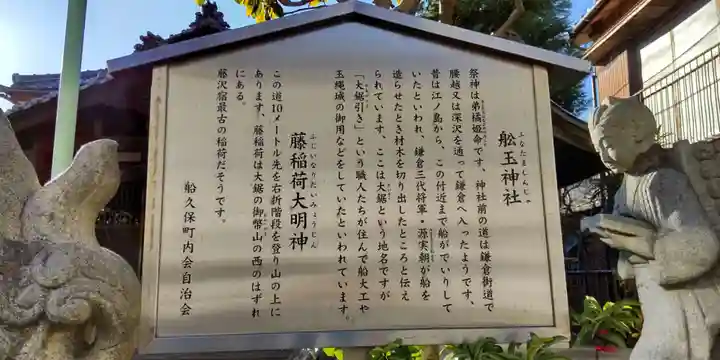 舩玉神社
ふなたましんじゃ
祭神は弟橘姫命です。神社前の道は鎌倉街道で
腰越又は深沢を通って鎌倉へ入ったようです。
昔は江ノ島から、この付近まで船がでいりして
いたといわれ、鎌倉三代将軍・源実朝が船を
造らせたとき材木を切り出したところと伝え
られています。ここは大鋸という地名ですが
「大鋸引き」という職人たちが住んで船大工や
玉縄城の御用などをしていたといわれています。
藤稲荷大明神
ふじいなりだいみょうじん
この道10メートル先を右折階段を登り山の上に
あります。藤稲荷は大鋸の御幣山の西のはずれ
にある。
藤沢宿最古の稲荷だそうです。
船久保町内会自治会